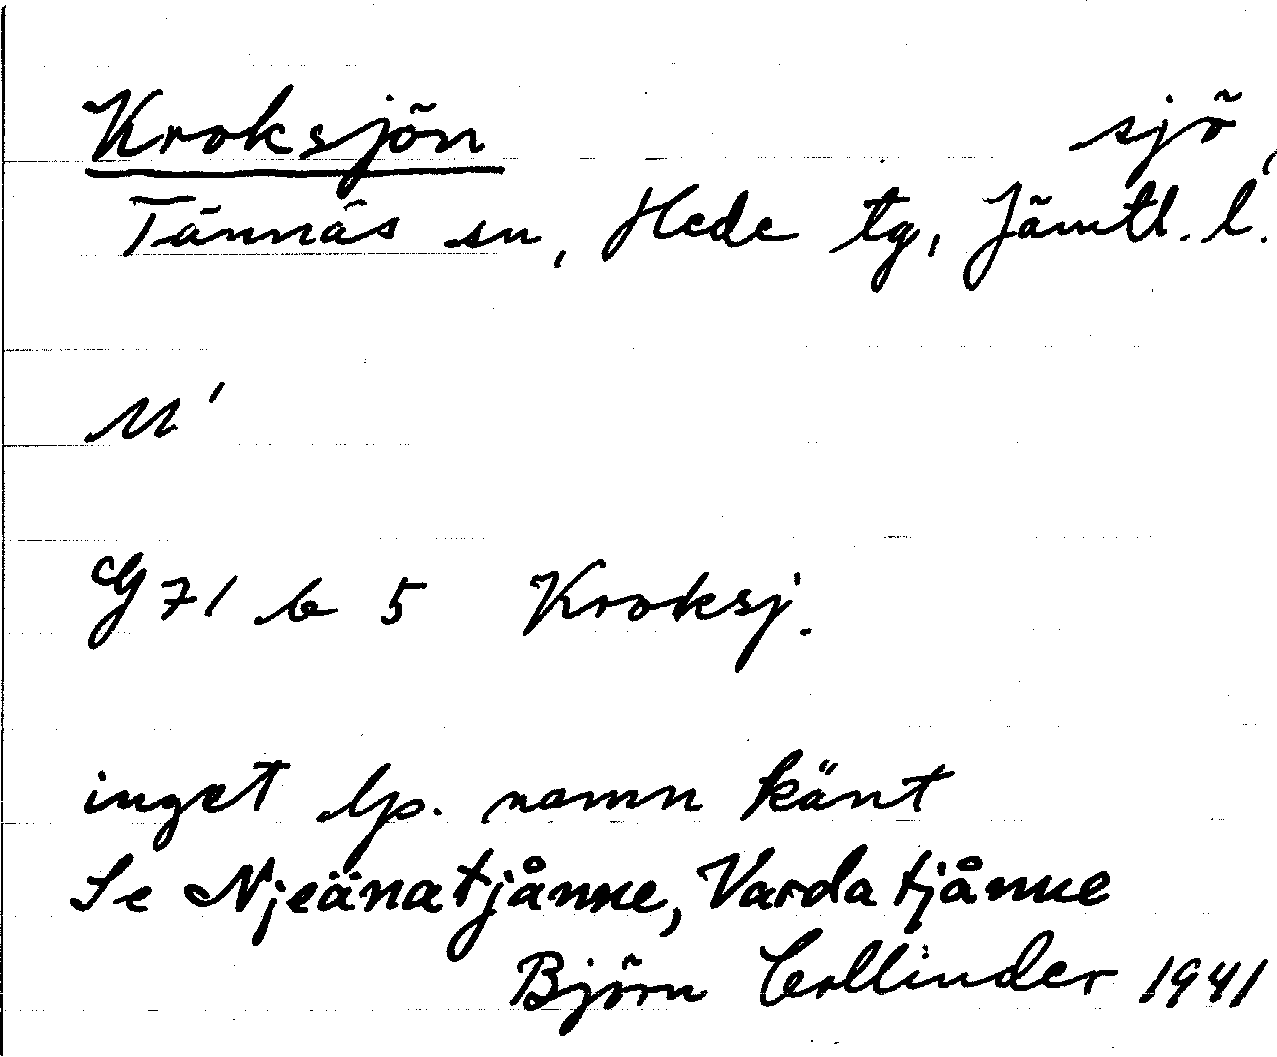 Kroksjön sjö,
Tännäs sn, Hede tg, Jämtl. l.
G 71 b 5 Kroksj.
inget lp. namn känt
Se Njeänatjånne, Vardatjånne
Björn Collinder 1941